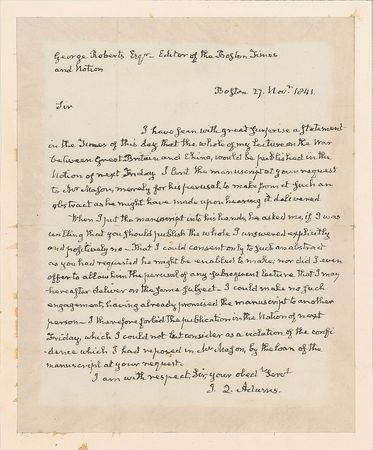 George Roberts Esqr. Editor of the Boston Times
and Notion
Boston 27. Novr. 1841.
Sir
I have seen with great surprise a statement
in the Times of this day that the whole of my Lecture on the War
between Great Britain and China, would be published in the
Notion of next Friday. I lent the manuscript at your request
to Mr Mason, merely for his perusal, to make from it such an
abstract as he might have made upon hearing it delivered
When I put the manuscript into his hands, he asked me, if I was
willing that you should publish the whole. I answered explicitly
and positively no— That I could consent only to such an abstract
as you had requested he might be enabled to make; nor did I even
offer to allow him the perusal of any subsequent lecture that I may
hereafter deliver on the same subject— I could make no such
engagement, having already promised the manuscript to another
person— I therefore forbid the publication in the Notion of next
Friday, which I could not but consider as a violation of the confi-
dence which I had reposed in Mr Mason, by the loan of the
manuscript at your request.
I am with respect, Sir, your obedt Servt
J. Q. Adams.